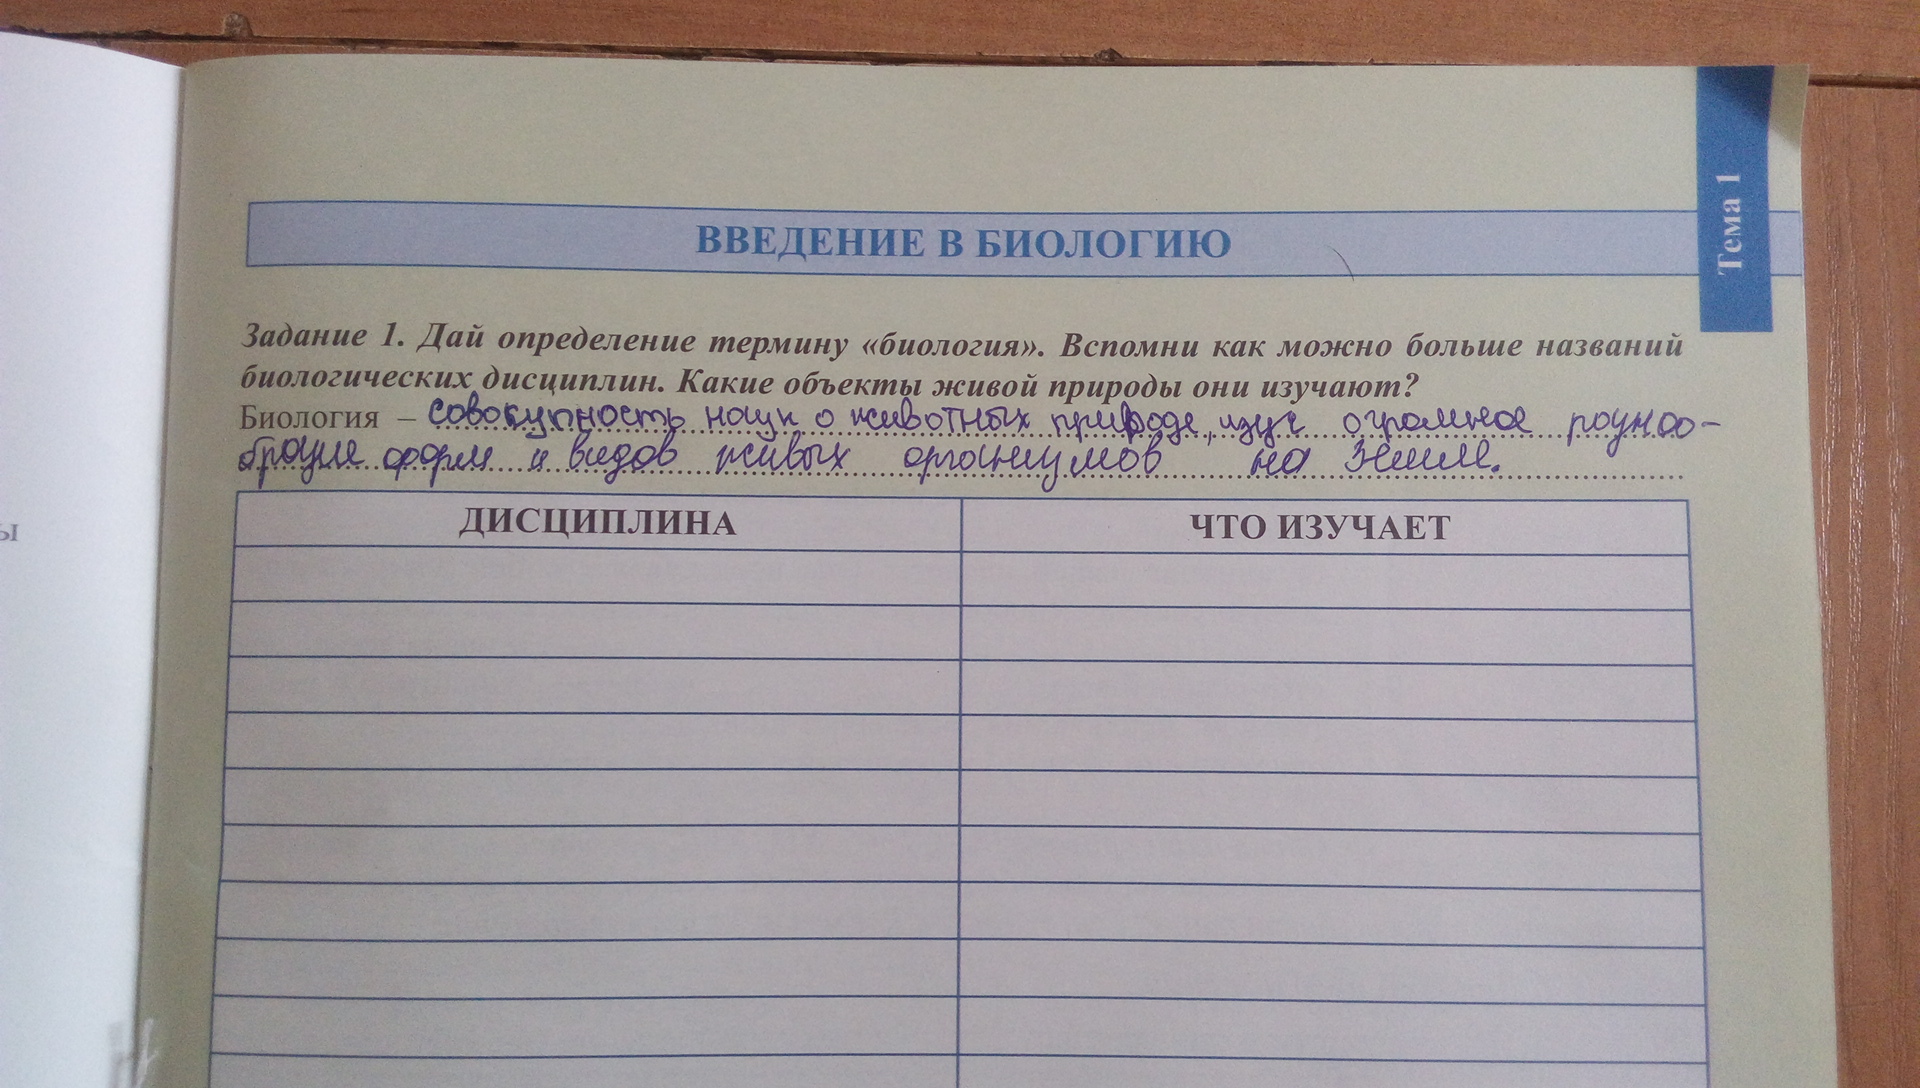 Тема 1
ВВЕДЕНИЕ В БИОЛОГИЮ
Задание 1. Дай определение термину «биология». Вспомни как можно больше названий
биологических дисциплин. Какие объекты живой природы они изучают?
Биология – совокупность наук о животных природе, изуч огромное разноо-
бразие форм и видов живых организмов на Земле.
ДИСЦИПЛИНА
ЧТО ИЗУЧАЕТ